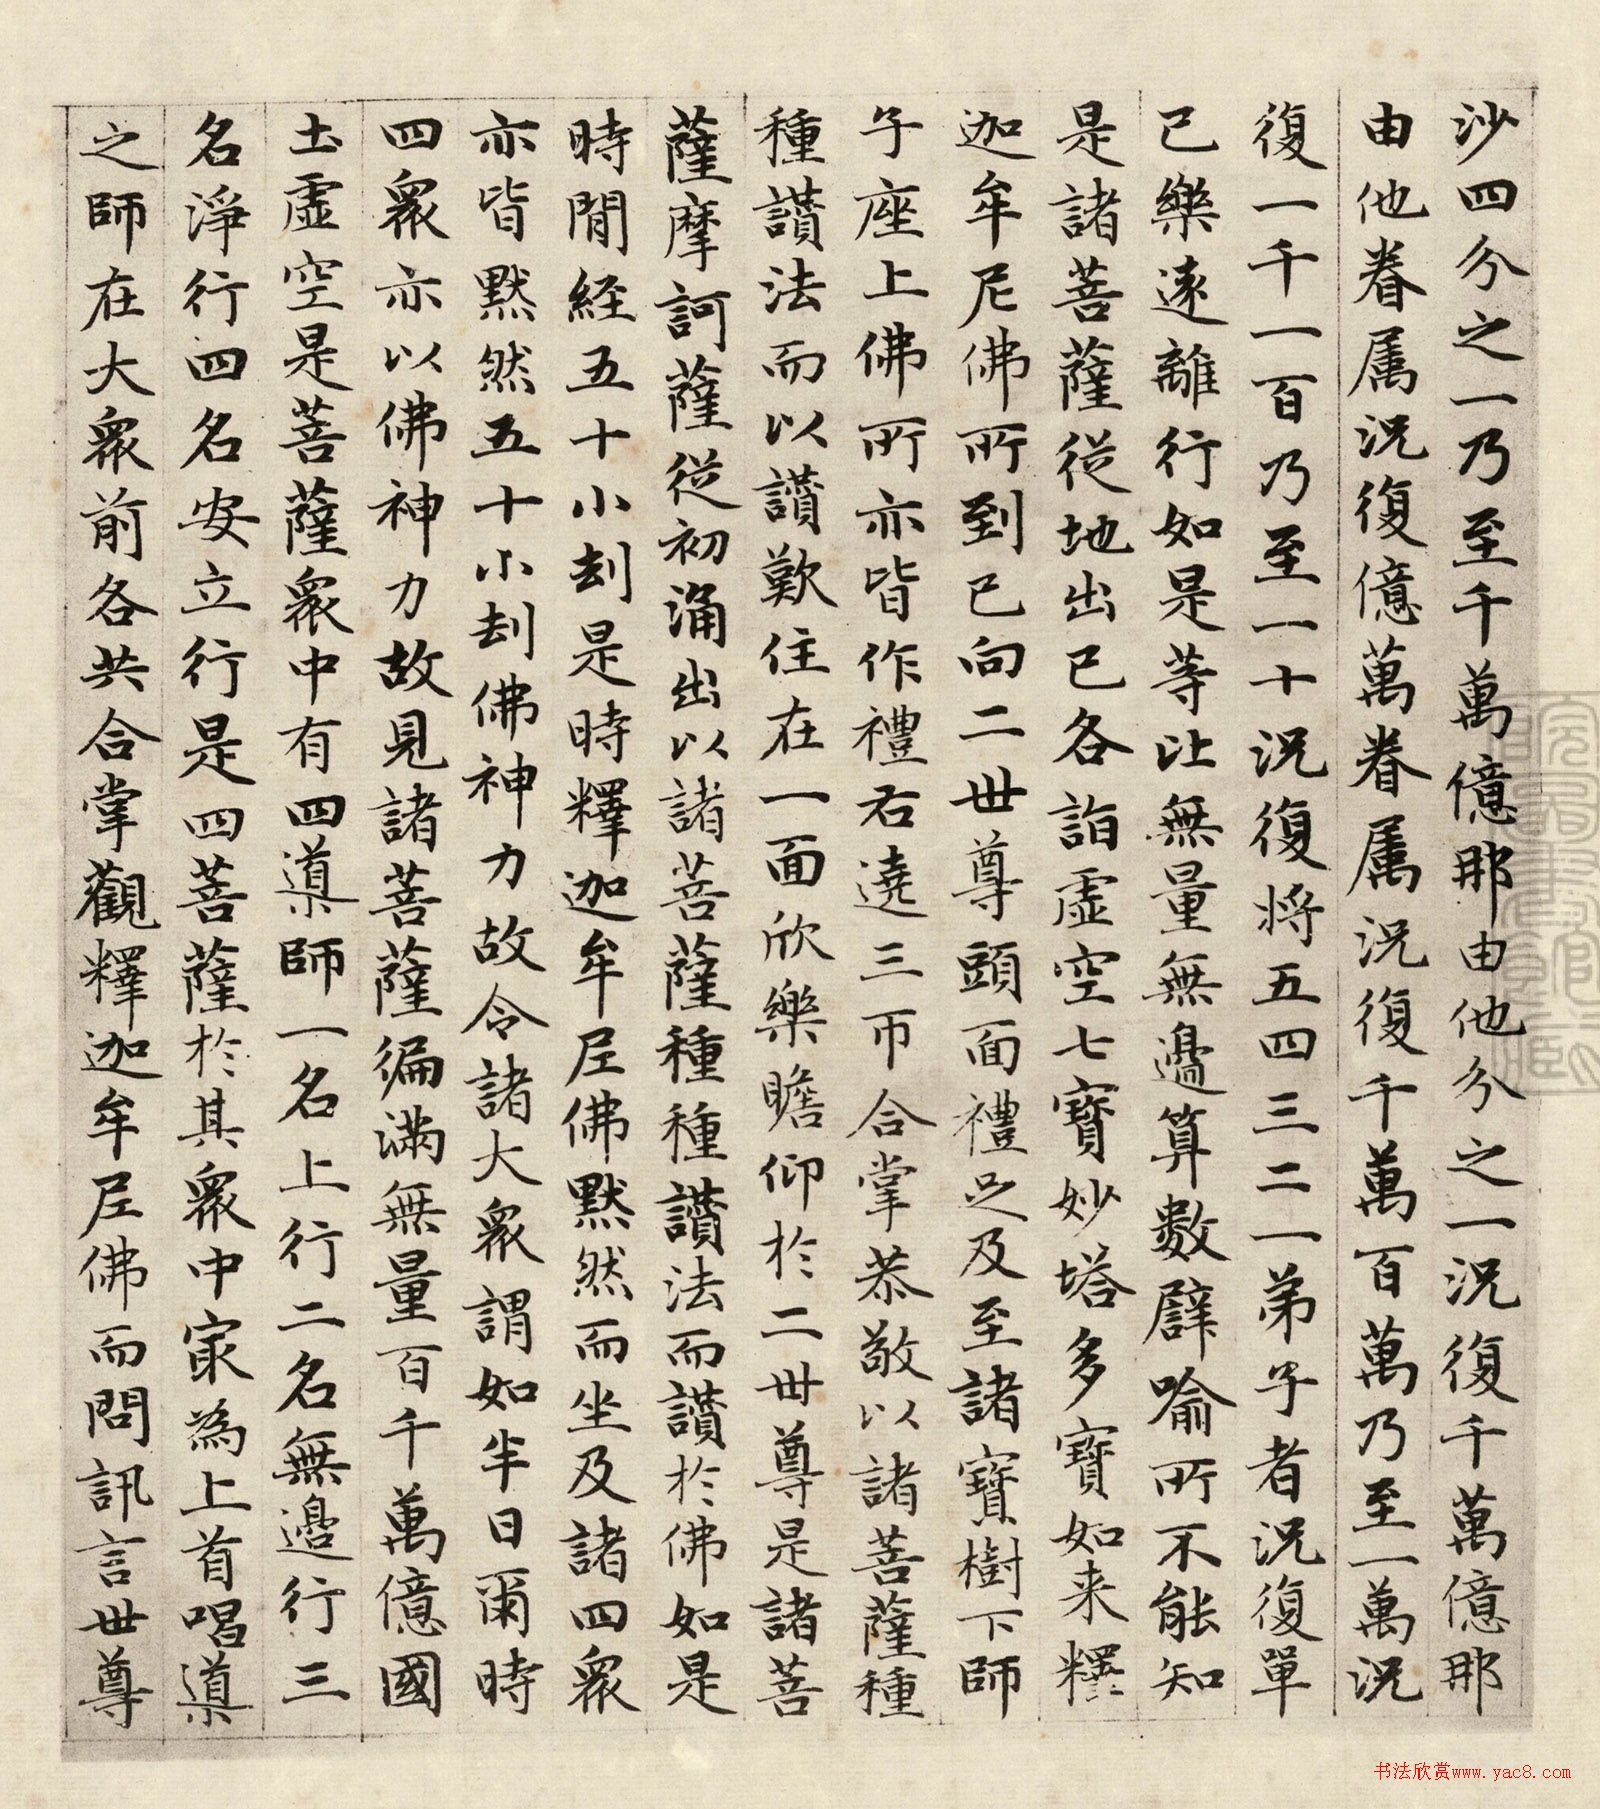 沙四分之一乃至千萬億那由他分之一況復千萬億那
由他眷属況復億萬眷属況復千萬百萬乃至一萬況
復一千一百乃至一十況復将五四三二一弟子者況復單
已樂遠離行如是等比無量無邊算數譬喻所不能知
是諸菩薩從地出已各詣虛空七寶妙塔多寶如来釋
迦牟尼佛所到已向二世尊頭面禮足及至諸寶樹下師
子座上佛所亦皆作禮右遶三帀合掌恭敬以諸菩薩種
種讃法而以讃歎住在一面欣樂瞻仰於二世尊是諸菩
薩摩訶薩從初涌出以諸菩薩種種讃法而讃於佛如是
時間經五十小刧是時釋迦牟尼佛默然而坐及諸四衆
亦皆默然五十小刧佛神力故令諸大衆謂如半日爾時
四衆亦以佛神力故見諸菩薩徧满無量百千萬億國
土虛空是菩薩衆中有四導師一名上行二名無邊行三
名淨行四名安立行是四菩薩於其衆中冣為上首唱導
之師在大衆前各共合掌觀釋迦牟尼佛而問訊言世尊
书法欣赏www.yac8.com